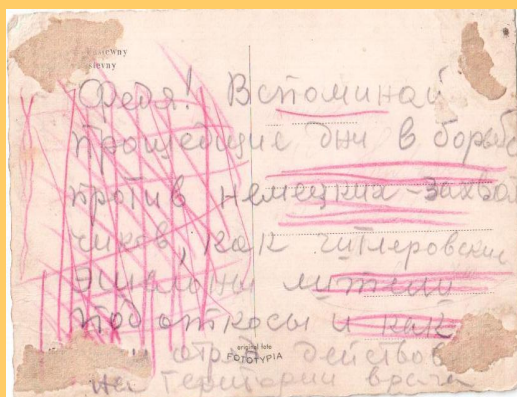 Федя! Вспоминай
прошедшие дни в борьбе
против немецких-захват
чиков, как гитлеровские
эшалоны лители
под откосы и как
отряд действов
на територии врага
original foto
FOTOTYPIA